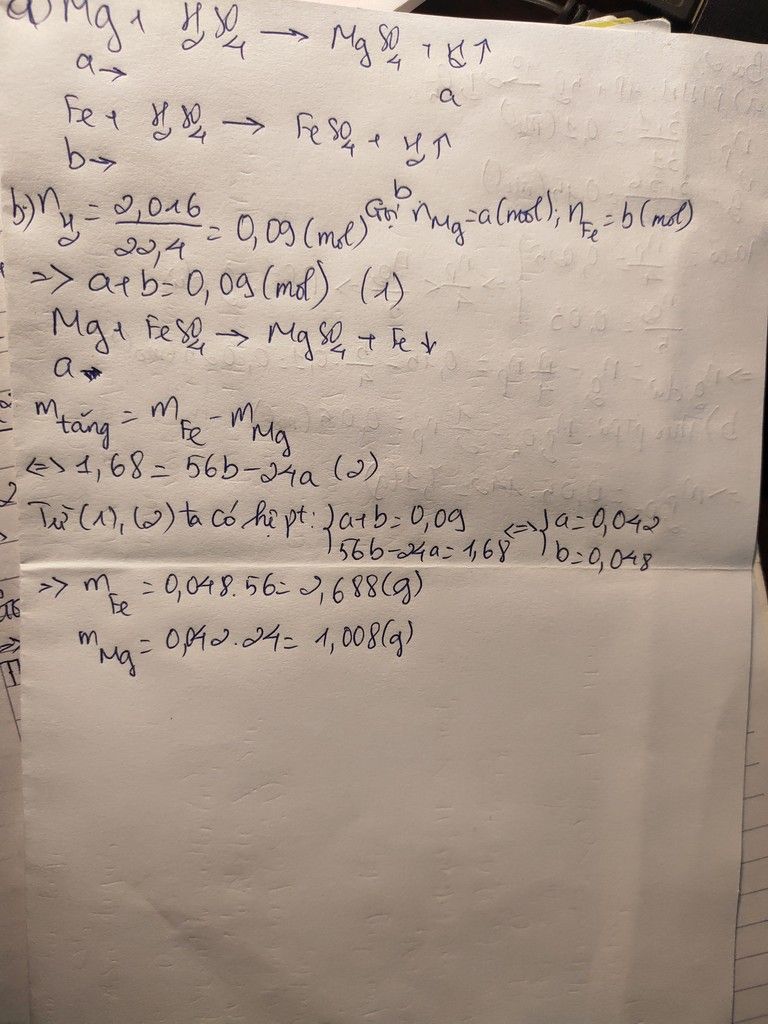 a) Mg + H2SO4 → MgSO4 + H2↑
a→ a
Fe + H2SO4 → FeSO4 + H2↑
b→ b
b) nH2 = 2,016/22,4 = 0,09 (mol) Gọi nMg = a (mol); nFe = b (mol)
=> a+b = 0,09 (mol) (1)
Mg + FeSO4 → MgSO4 + Fe↓
a→
mtăng = mFe - mMg
<=> 1,68 = 56b - 24a (2)
Từ (1), (2) ta có hệ pt: { a+b = 0,09 <=> { a = 0,042
56b - 24a = 1,68 b = 0,048
=> mFe = 0,048.56 = 2,688 (g)
mMg = 0,042.24 = 1,008 (g)